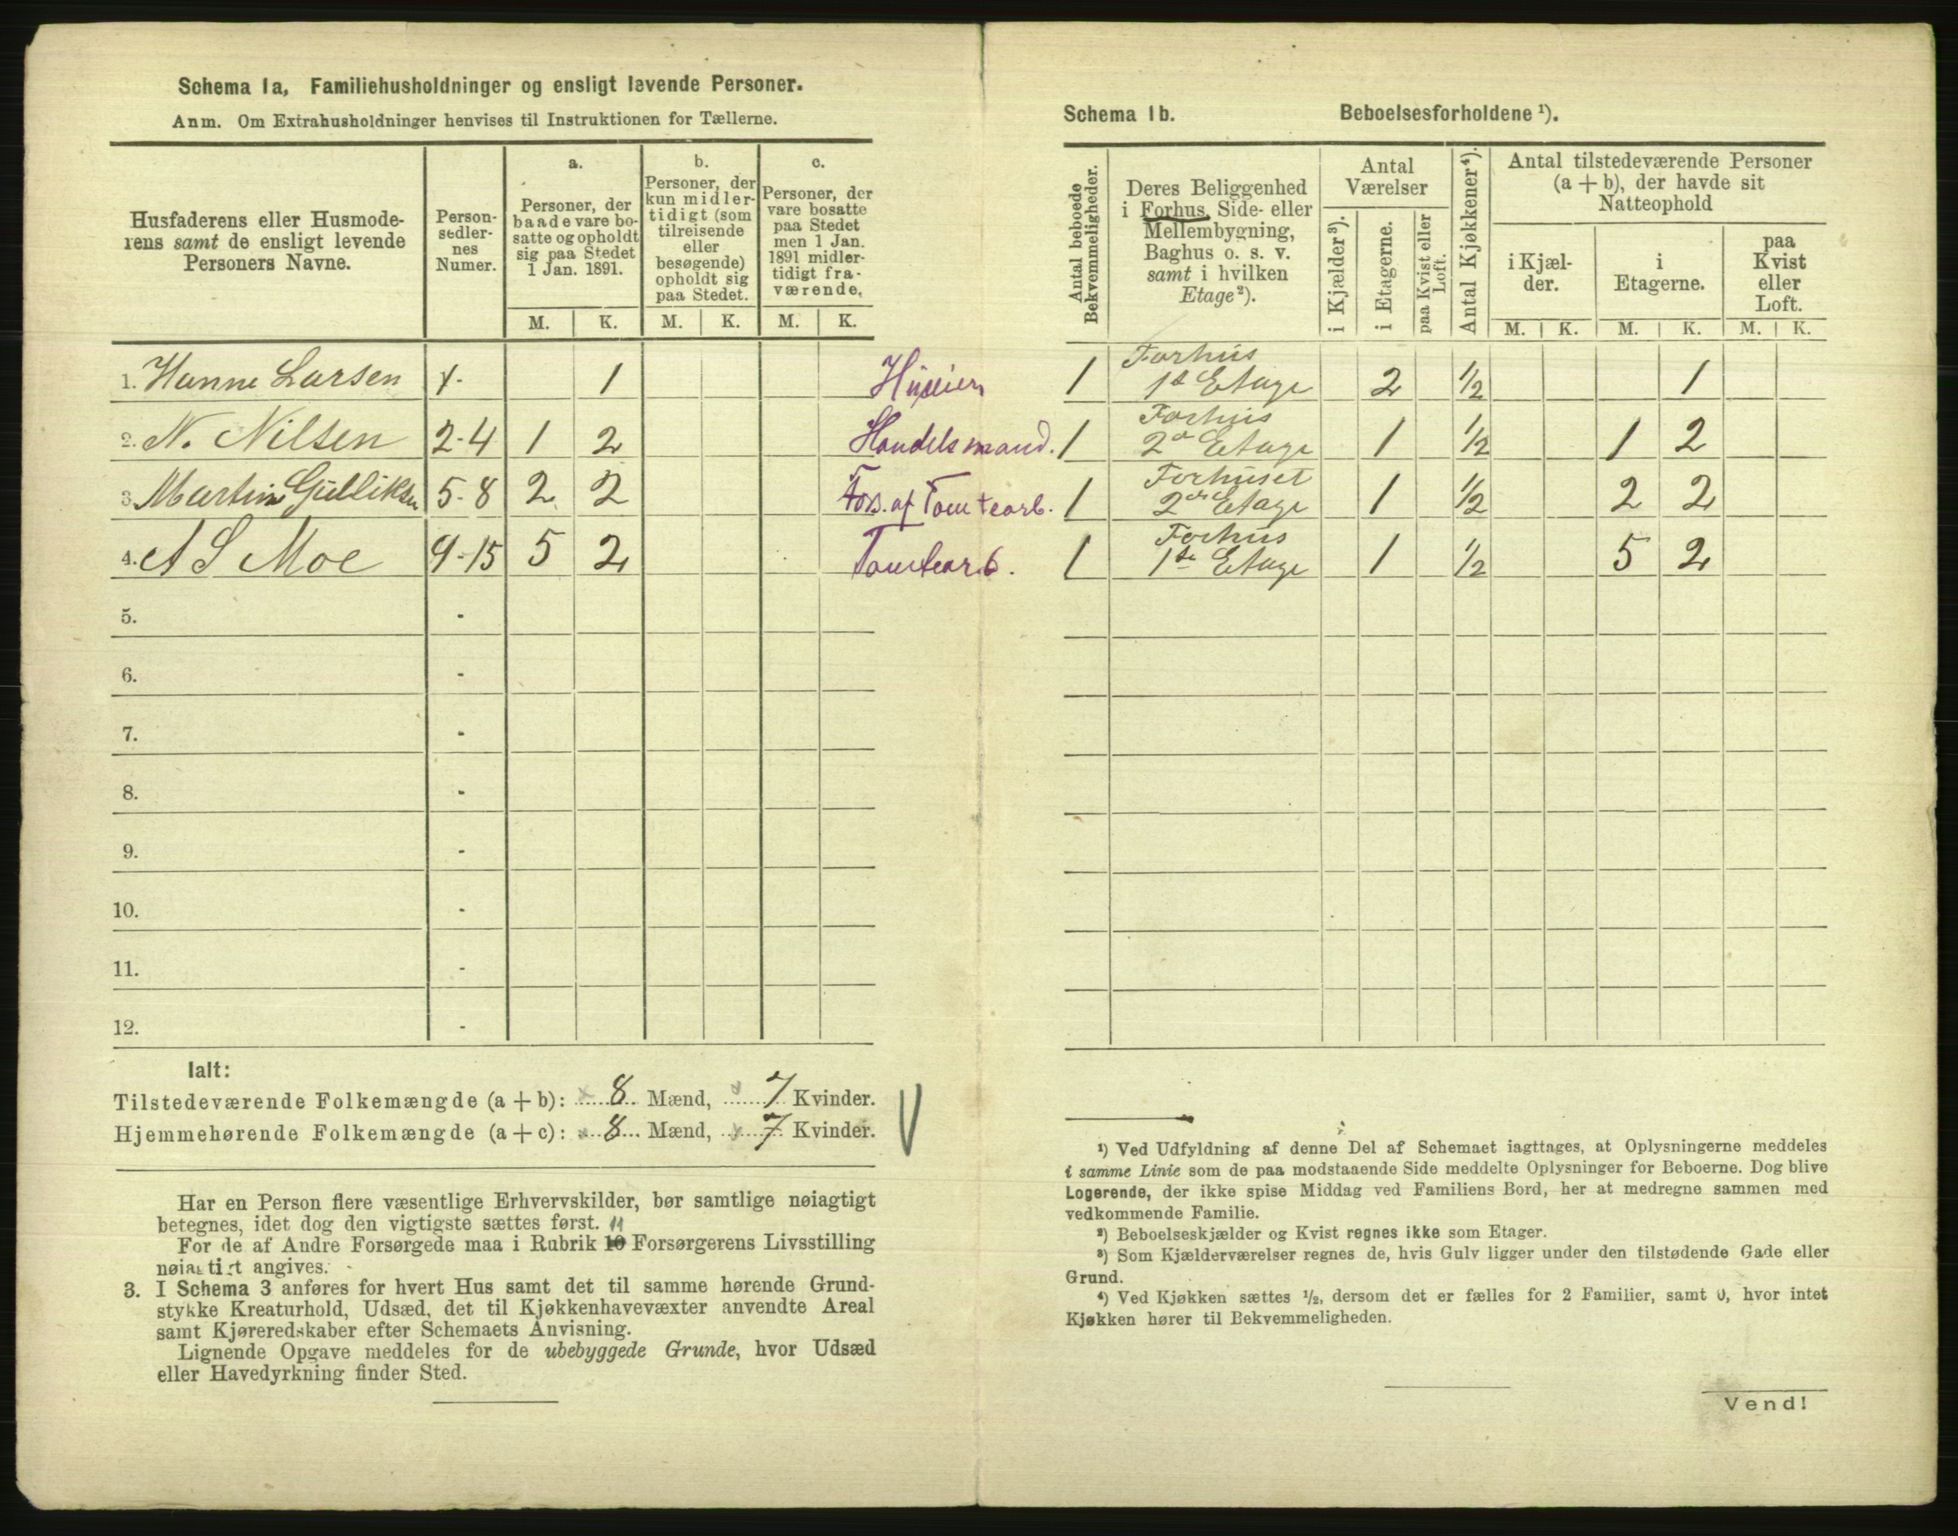 Schema 1a, Familiehusholdninger og ensligt levende Personer.
Anm. Om Extrahusholdninger henvises til Instruktionen for Tællerne.
Husfaderens eller Husmoderens samt de ensligt levende Personers Navne.
Personsedlernes Numer.
a.
Personer, der baade vare bosatte og opholdt sig paa Stedet 1 Jan. 1891.
b.
Personer, der kun midlertidigt (som tilreisende eller besøgende) opholdt sig paa Stedet.
c.
Personer, der vare bosatte paa Stedet men 1 Jan. 1891 midlertidigt fraværende.
M. K. M. K. M. K.
1. Hanne Larsen 1 Huseier
2. N. Nilsen 2-4 1 2 Handelsmand.
3 Martin Gulliksen 5-8 2 2 Fors. af Tomtearb.
4. A S Moe 9-15 5 2 Tomtearb.
5. -
6. -
7. -
8. -
9. -
10. -
11. -
12. -
Ialt:
Tilstedeværende Folkemængde (a + b): 8 Mænd, 7 Kvinder.
Hjemmehørende Folkemængde (a + c): 8 Mænd, 7 Kvinder.
Har en Person flere væsentlige Erhvervskilder, bør samtlige nøiagtigt
betegnes, idet dog den vigtigste sættes først. 11
For de af Andre Forsørgede maa i Rubrik 10 Forsørgerens Livsstilling
nøiagtigt angives.
3. I Schema 3 anføres for hvert Hus samt det til samme hørende Grund-
stykke Kreaturhold, Udsæd, det til Kjøkkenhavevæxter anvendte Areal
samt Kjøreredskaber efter Schemaets Anvisning.
Lignende Opgave meddeles for de ubebyggede Grunde, hvor Udsæd
eller Havedyrkning finder Sted.
Schema 1b. Beboelsesforholdene ¹).
Antal beboede Bekvemmeligheder.
Deres Beliggenhed i Forhus, Side- eller Mellembygning, Baghus o. s. v. samt i hvilken Etage²).
Antal Værelser
i Kjælder³).
i Etagerne.
paa Kvist eller Loft.
Antal Kjøkkener⁴).
Antal tilstedeværende Personer (a + b), der havde sit Natteophold
i Kjælder.
i Etagerne.
paa Kvist eller Loft.
M. K. M. K. M. K.
1 Forhus 1ste Etage 2 ½ 1
1 Forhus 2d Etage 1 ½ 1 2
1 Forhuset 2den Etage 1 ½ 2 2
1 Forhus 1ste Etage 1 ½ 5 2
¹) Ved Udfyldning af denne Del af Schemaet iagttages, at Oplysningerne meddeles
i samme Linie som de paa modstaaende Side meddelte Oplysninger for Beboerne. Dog blive
Logerende, der ikke spise Middag ved Familiens Bord, her at medregne sammen med
vedkommende Familie.
²) Beboelseskjælder og Kvist regnes ikke som Etager.
³) Som Kjælderværelser regnes de, hvis Gulv ligger under den tilstødende Gade eller
Grund.
⁴) Ved Kjøkken sættes ½, dersom det er fælles for 2 Familier, samt 0, hvor intet
Kjøkken hører til Bekvemmeligheden.
Vend!